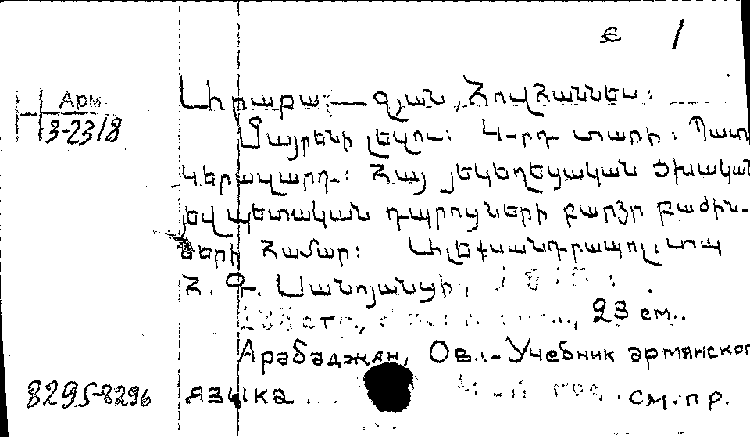 є 1
Арм.
3-2318
Արաբա — ջյան, Հովհաննես:
Մայրենի լեզու: 4-րդ տարի: Պատ
կերազարդ: Հայ յեկեղեցական ծխական
եվ պետական դպրոցների բարձր բաժին-
ների համար: Ալեքսանդրապոլ, տպ
Հ. Գ. Սանոյանցի,
стр., 23 см.
Арабаджян, Ов. - Учебник армянског
8295-8296 языка год. см. пр.